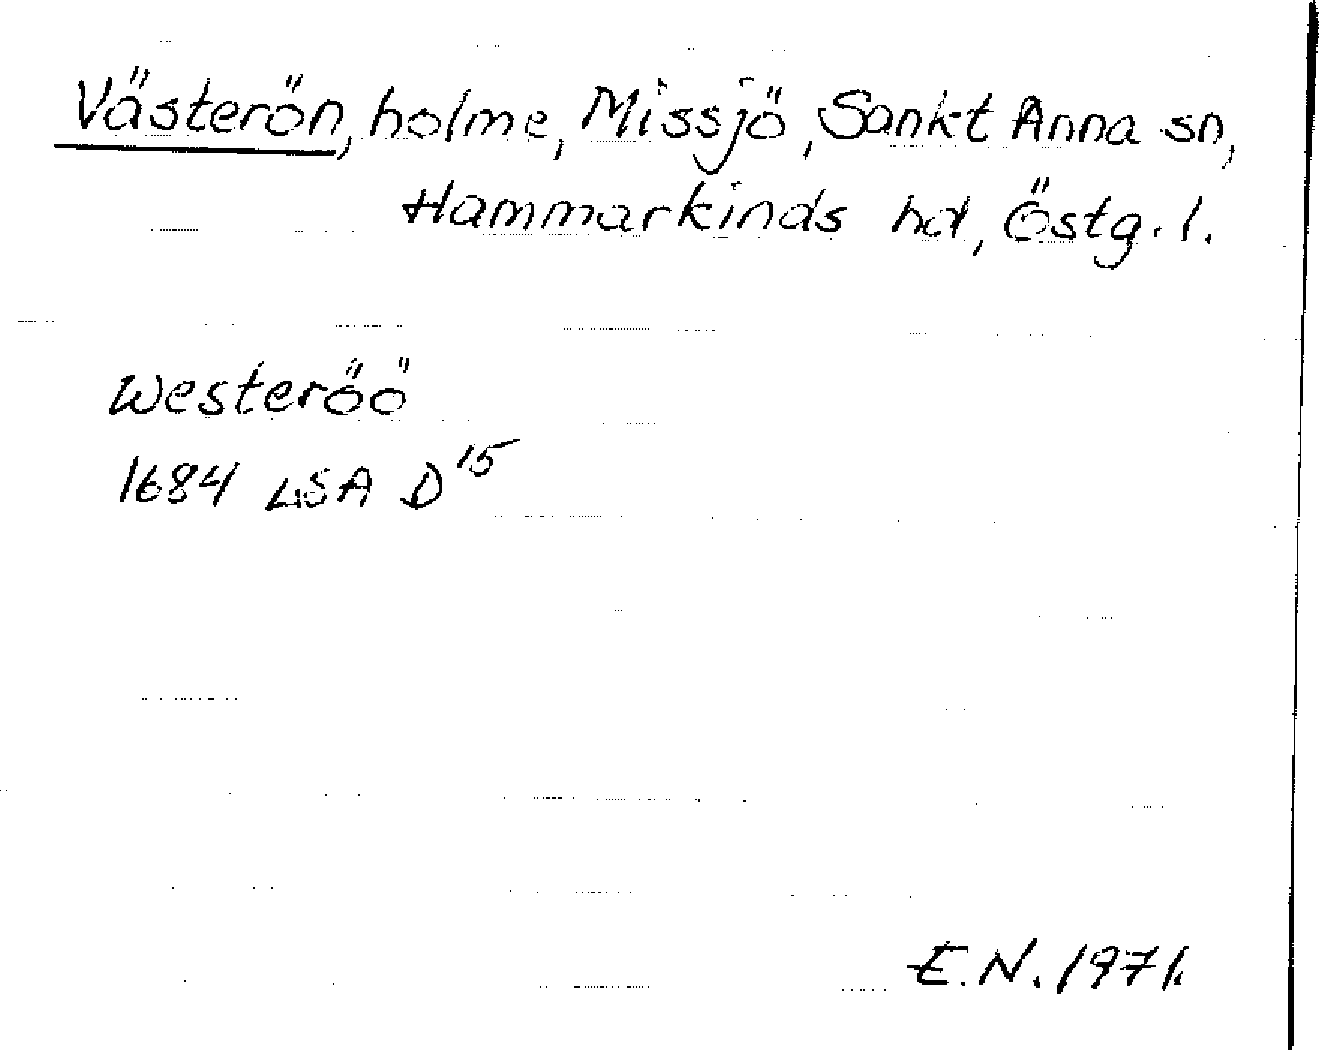 Västerön, holme, Missjö, Sankt Anna sn,
Hammarkinds hd, Östg. l.
Westeröö
1684 LSA D15
E.N. 1971.